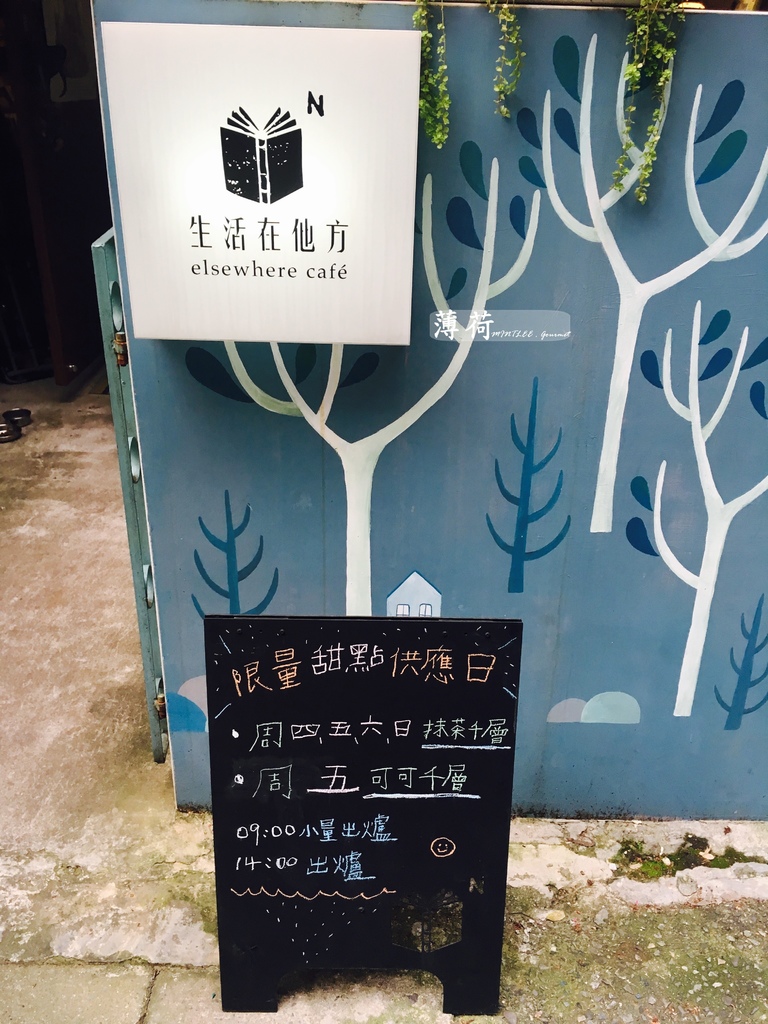 N
生活在他方
elsewhere café
薄荷 MINTLEE . Gourmet
限量甜點供應日
• 周四、五、六、日 抹茶千層
• 周 五 可可千層
09:00 小量出爐
14:00 出爐
N